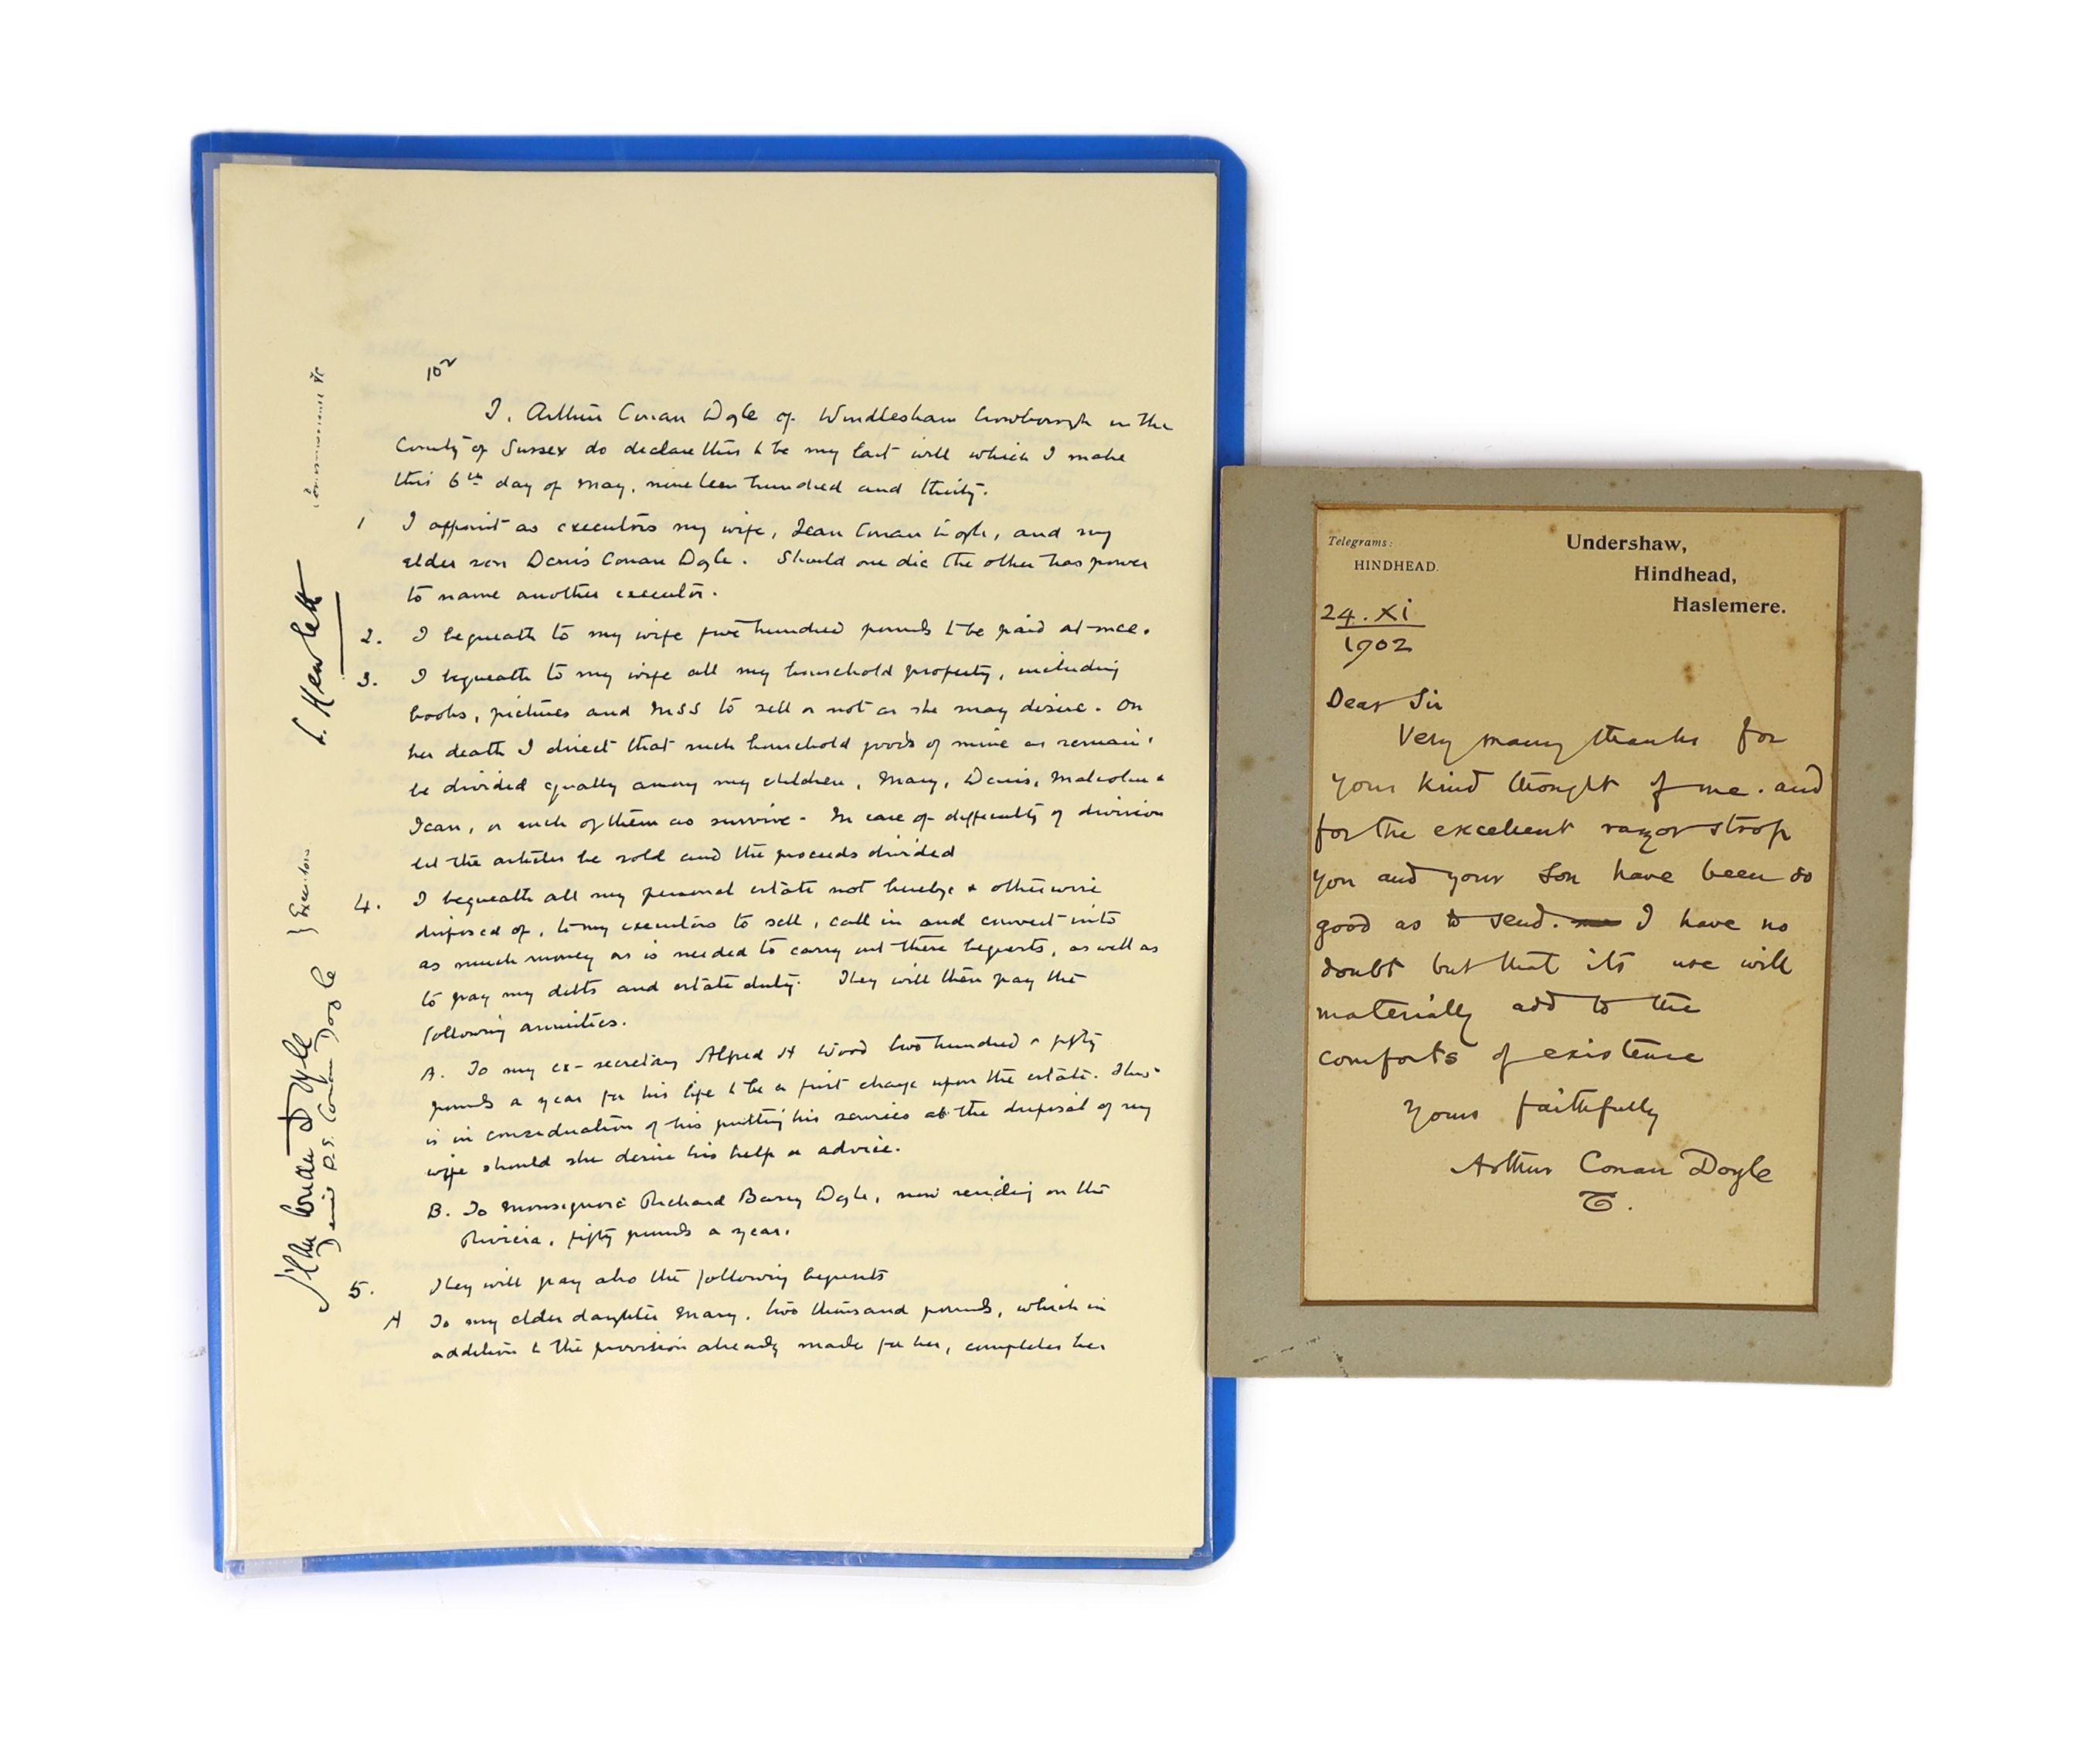 10²
I, Arthur Conan Doyle of Windlesham Crowborough in the
County of Sussex do declare this to be my last will which I make
this 6th day of May, nineteen hundred and thirty.
1 I appoint as executors my wife, Jean Conan Doyle, and my
elder son Denis Conan Doyle. Should one die the other has power
to name another executor.
2. I bequeath to my wife five hundred pounds to be paid at once.
3. I bequeath to my wife all my household property, including
books, pictures and MSS to sell or not as she may desire. On
her death I direct that such household goods of mine as remain,
be divided equally among my children, Mary, Denis, Malcolm &
Jean, or such of them as survive. In case of difficulty of division
let the articles be sold and the proceeds divided
4. I bequeath all my personal estate not hereby & otherwise
disposed of, to my executors to sell, call in and convert into
as much money as is needed to carry out these bequests, as well as
to pay my debts and estate duty. They will then pay the
following annuities.
A. To my ex-secretary Alfred H Wood two hundred & fifty
pounds a year for his life to be a first charge upon the estate. This
is in consideration of his putting his services at the disposal of my
wife should she desire his help or advice.
B. To Monsignore Richard Barry Doyle, now residing on the
Riviera, fifty pounds a year.
5. They will pay also the following bequests
A To my elder daughter Mary, two thousand pounds, which in
addition to the provision already made for her, completes her
Denis P.S. Conan Doyle
} Executors
Commissioner &c
Telegrams:
HINDHEAD.
Undershaw,
Hindhead,
Haslemere.
24.XI
1902
Dear Sir
Very many thanks for
your kind thought of me. and
for the excellent razor strop
you and your son have been so
good as to send. me I have no
doubt but that its use will
materially add to the
comforts of existence
Yours faithfully
Arthur Conan Doyle